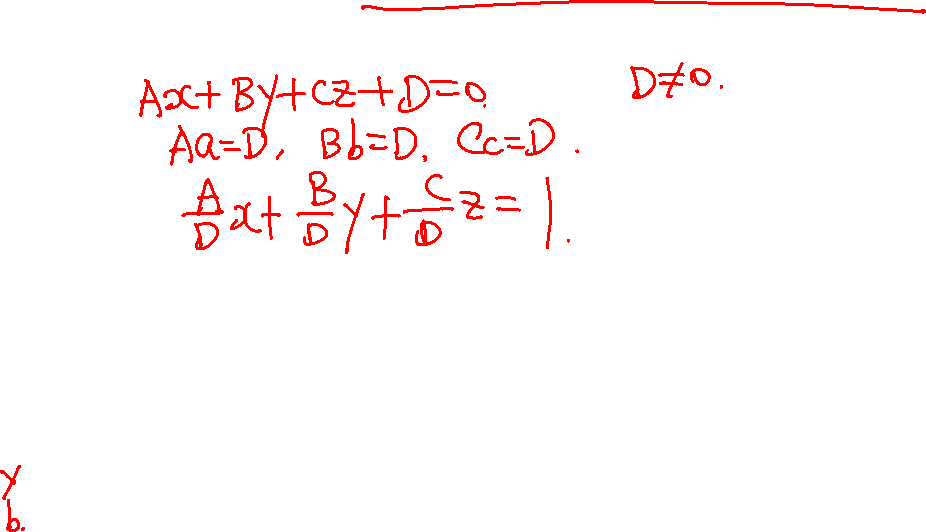 Ax+By+Cz+D=0. D≠0.
Aa=D, Bb=D, Cc=D.
A/D x + B/D y + C/D z = 1.
y
b.